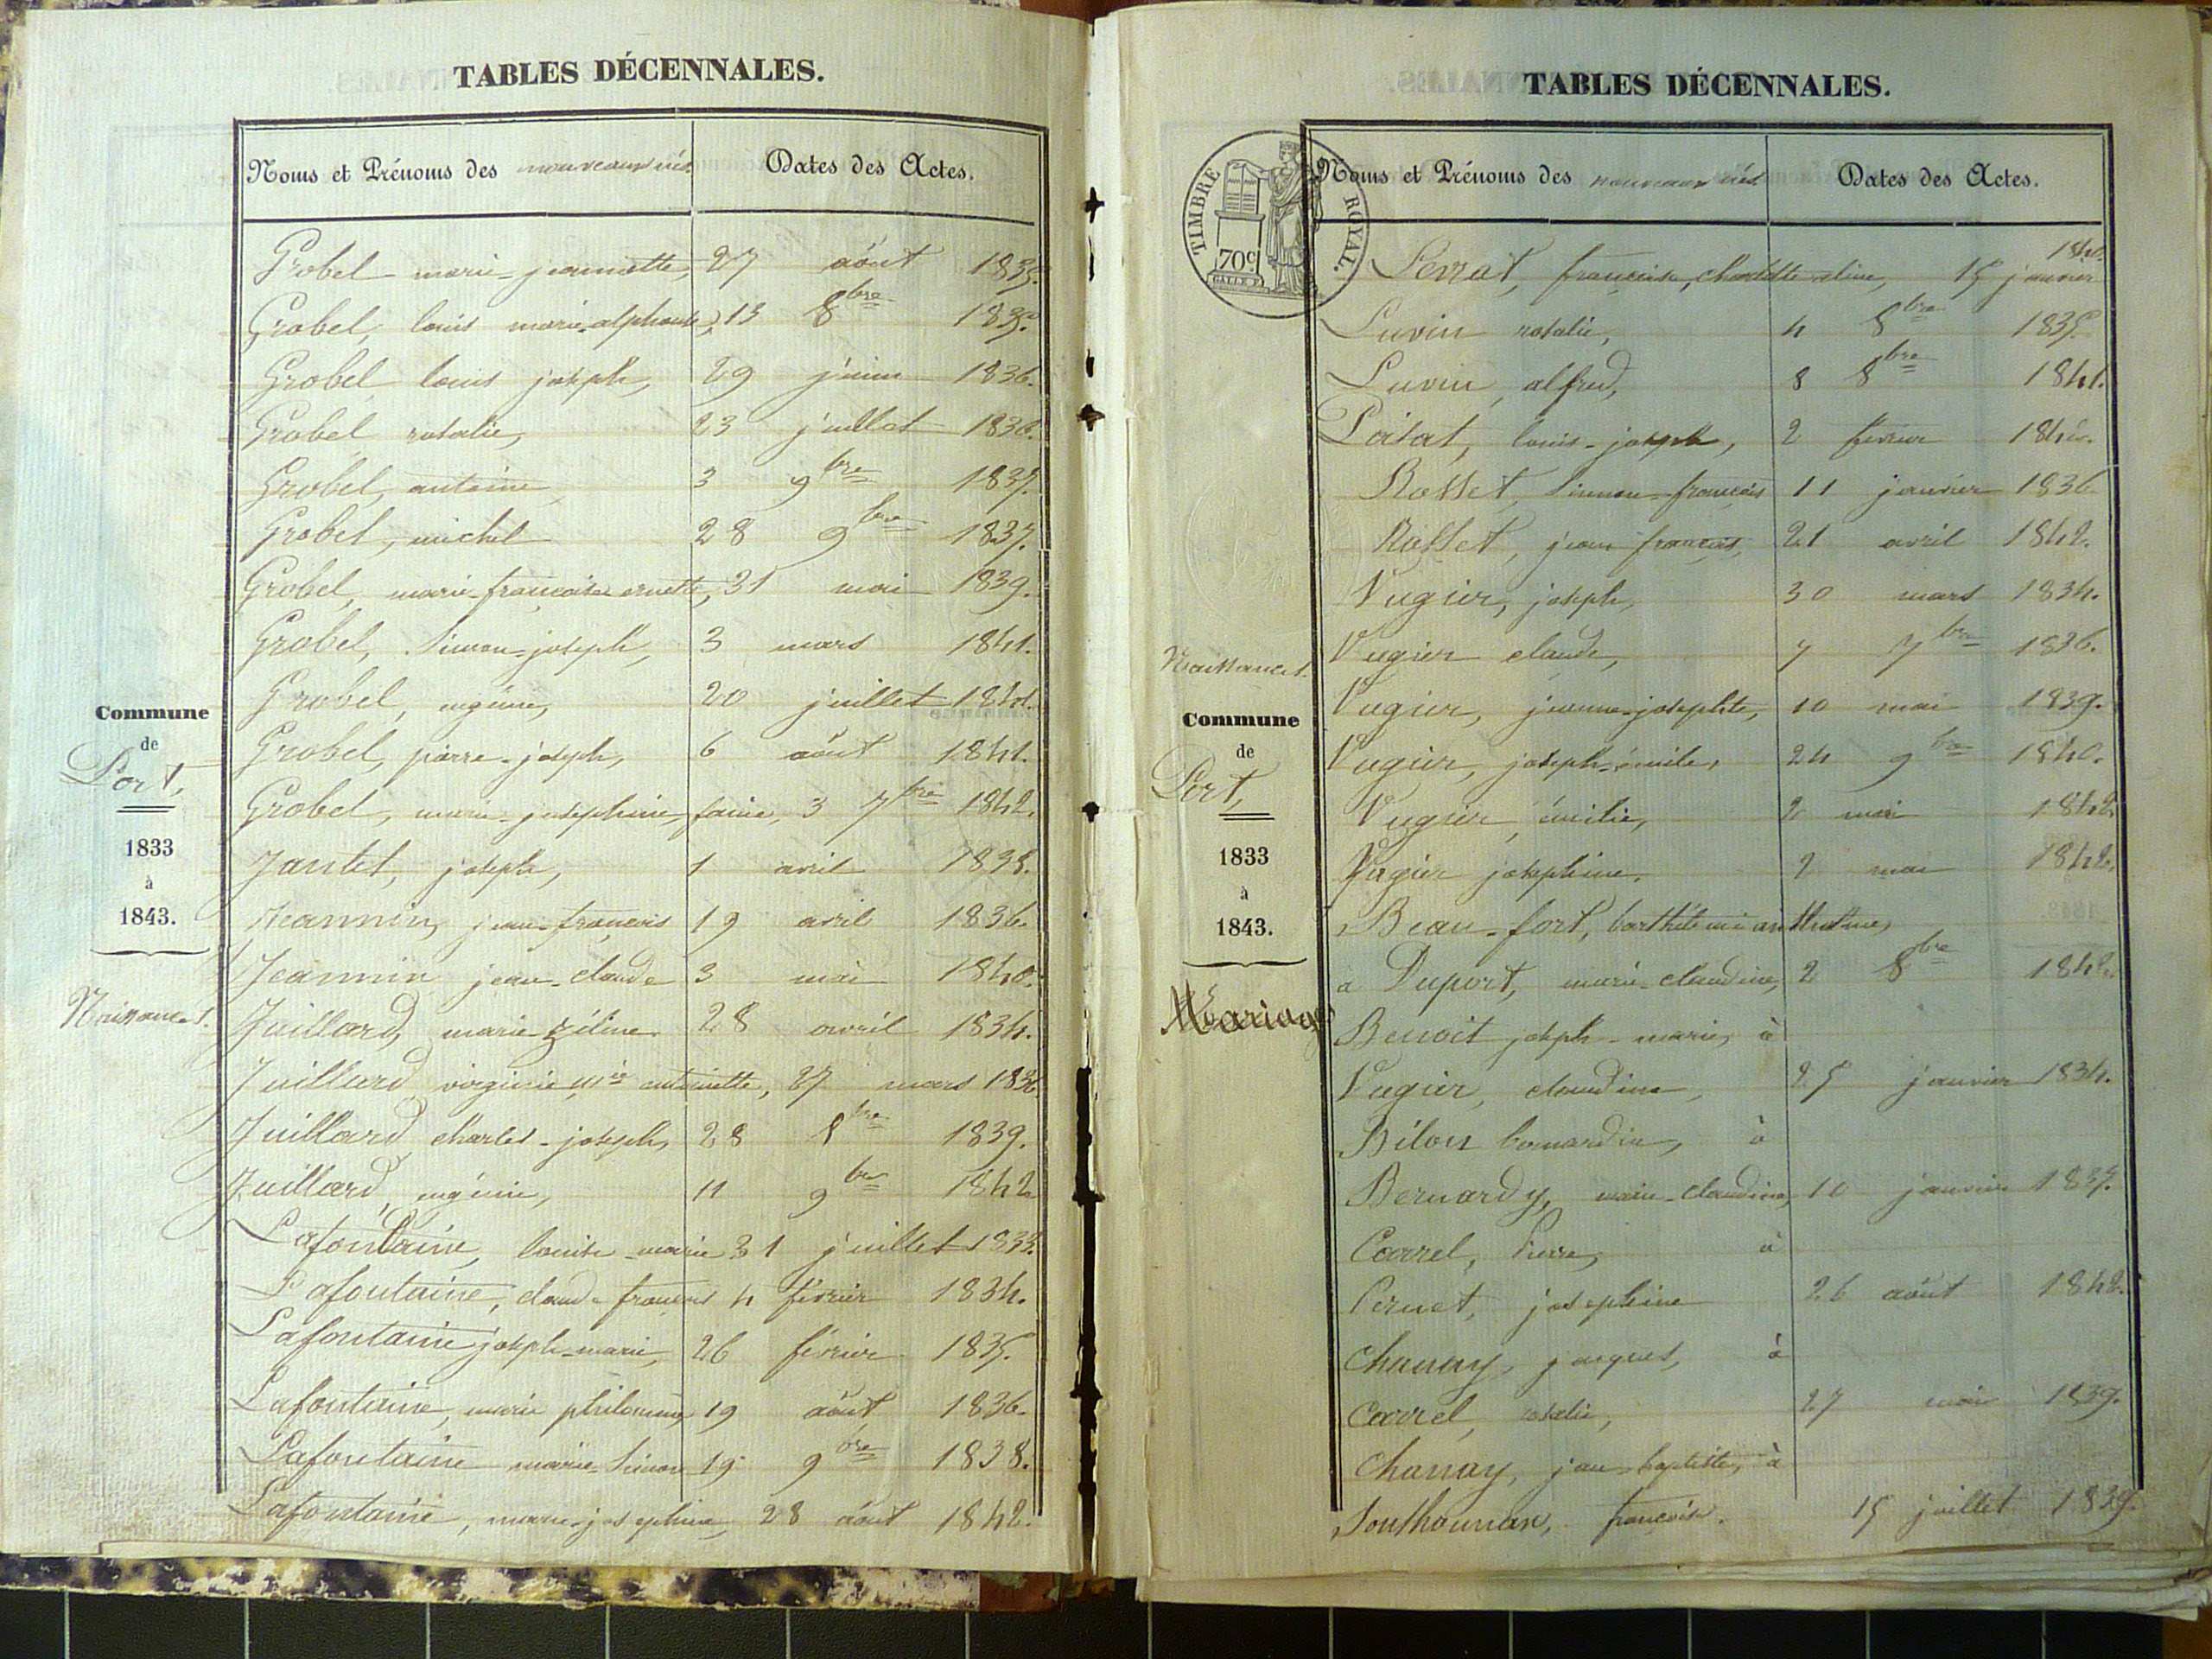 TABLES DÉCENNALES.
Noms et Prénoms des nouveaux nés
Dates des Actes.
Commune
de
Port,
1833
à
1843.
Naissances.
Grobel marie-jeannette, 27 août 1835.
Grobel, louis marie-alphonse, 13 8bre 1835.
Grobel louis joseph, 29 juin 1836.
Grobel rosalie, 23 juillet 1836.
Grobel, antoine, 3 9bre 1837.
Grobel, michel 28 9bre 1837.
Grobel, marie-françoise annette, 31 mai 1839.
Grobel, Simon-joseph, 3 mars 1841.
Grobel, eugénie, 20 juillet 1841.
Grobel, pierre-joseph, 6 août 1841.
Grobel, marie-josephine, 3 7bre 1842.
Jantet, joseph, 1 avril 1838.
Jeannin, jean-françois 19 avril 1836.
Jeannin jean-claude 3 mai 1840.
Juillard, marie-zéline. 28 avril 1834.
Juillard virginie mie antoinette, 27 mars 1836.
Juillard charles-joseph, 28 8bre 1839.
Juillard, eugénie, 11 9bre 1842
Lafontaine, louise-marie 31 juillet 1833.
Lafontaine, claude françois 4 février 1834.
Lafontaine joseph-marie, 26 février 1835.
Lafontaine, marie philomène, 19 août 1836.
Lafontaine marie-Simon 19 9bre 1838.
Lafontaine, marie-josephine, 28 août 1842.
TABLES DÉCENNALES.
TIMBRE ROYAL.
70c
Noms et Prénoms des nouveaux nés
Dates des Actes.
Naissances.
Commune
de
Port,
1833
à
1843.
Mariages
françoise, charlotte 15 janvier 1840.
Luvin rosalie, 4 8bre 1835.
Luvin, alfred, 8 8bre 1841.
louis-joseph, 2 février
Rosset, Simon-françois 11 janvier 1836
Rosset, jean françois, 21 avril 1842.
Vugier, joseph, 30 mars 1834.
Vugier claude, 7 7bre 1836.
Vugier, jeanne-josephte, 10 mai 1839.
Vugier, joseph-émile, 24 9bre 1840.
Vugier, émilie, 2 mai 1842.
Vugier josephine. 2 mai 1842.
Beau-fort, barthélemi anthelme,
à Duport, marie-claudine, 2 8bre 1842.
Benoit joseph-marie, à
Vugier, claudine, 25 janvier 1834.
Bilon bernardin, à
Bernardy, marie-claudine, 10 janvier 1837.
Carrel, Pierre, à
Pernet, josephine 26 août 1842.
Chanay, jacques, à
Carrel, rosalie, 27 mai 1839.
Chanay, jean-baptiste, à
Southonnax, françoise. 15 juillet 1839.